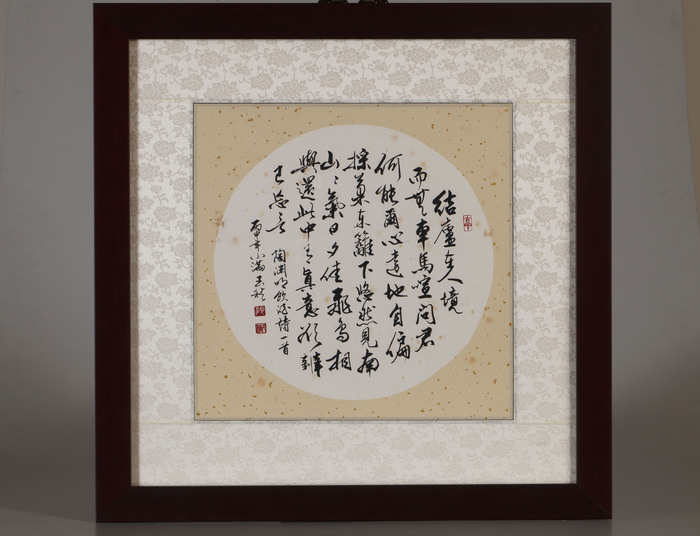 結廬在人境
而無車馬喧問君
何能爾心遠地自偏
採菊東籬下悠然見南
山〻氣日夕佳飛鳥相
與還此中有真意欲辨
已忘言
陶淵明飲酒詩一首
小滿